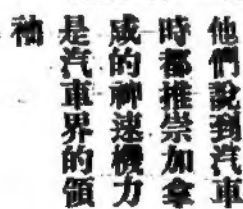 他們說到汽車
時都推崇加拿
咸的神迷機力
是汽車界的領
袖